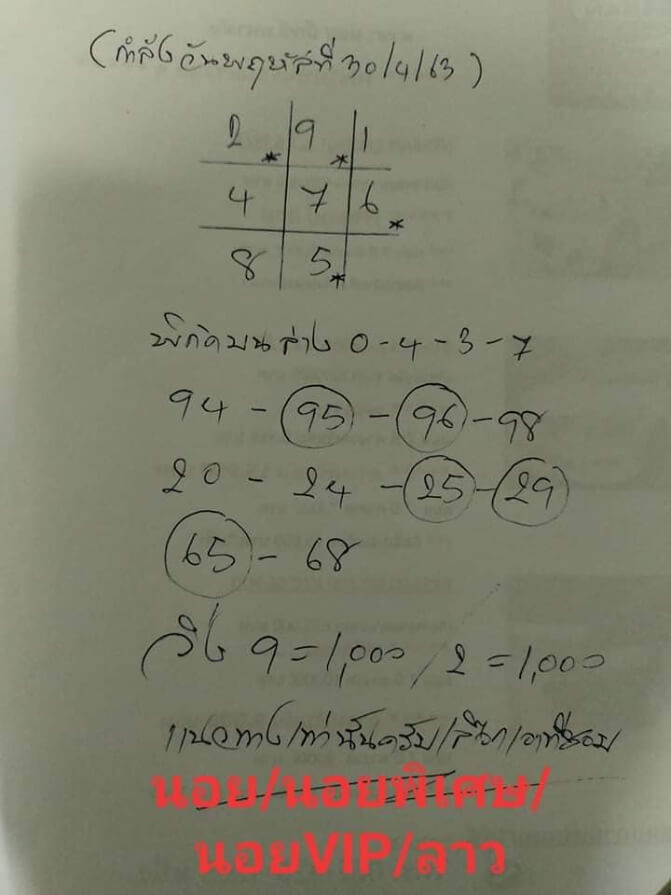 (กำลังวันพฤหัสที่ 30/4/63)
2 9 1
4 7 6
8 5
พิกัดบนล่าง 0-4-3-7
94 - 95 - 96 - 98
20 - 24 - 25 - 29
65 - 68
วิ่ง 9 = 1,000 / 2 = 1,000
แนวทางเท่านั้นครับ/
นอย/นอยพิเศษ/
นอยVIP/ลาว